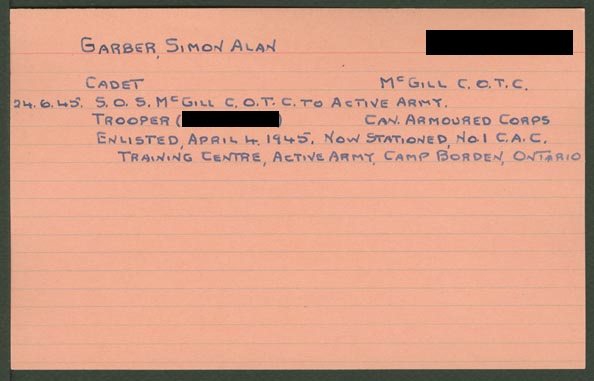 GARBER, SIMON ALAN
CADET McGILL C.O.T.C.
24.6.45. S.O.S. McGILL C.O.T.C. TO ACTIVE ARMY.
TROOPER ( ) CAN. ARMOURED CORPS
ENLISTED, APRIL 4, 1945. NOW STATIONED, NO.1 C.A.C.
TRAINING CENTRE, ACTIVE ARMY, CAMP BORDEN, ONTARIO